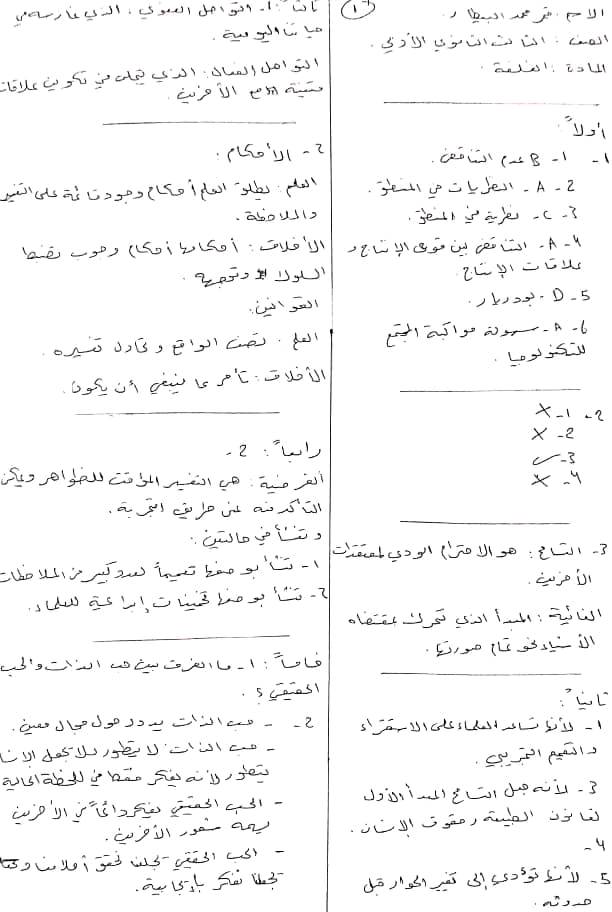 الاسم: قمر محمد البيطار.
١
الصف: الثالث الثانوي الأدبي.
المادة: الفلسفة
أولاً:
1- 1- B عدم التناقض.
2- A- النظريات في المنطق.
3- C- نظرية في المنطق.
4- A- التناقض بين قوى الإنتاج و
علاقات الإنتاج.
5- D. بودريار.
6- A- سهولة مواكبة المجتمع
للتكنولوجيا.
2- 1- X
2- X
3- ✓
4- X
3- التسامح: هو الاحترام الودي لمعتقدات
الآخرين.
الغائية: المبدأ الذي تتحرك بمقتضاه
الأشياء نحو تمام صورتها.
ثانياً:
1- لأنها تساعد العلماء على الاستقراء
والتعميم التجريبي.
3- لأنه جعل التسامح المبدأ الأول
لقانون الطبيعة وحقوق الإنسان.
4-
5- لأنها تؤدي إلى تفسير الحوار قبل
حدوثه.
ثالثاً: 1- التواصل العفوي: الذي نمارسه في
حياتنا اليومية.
التواصل الفعال: الذي يتجلى في تكوين علاقات
متينة مع الآخرين.
2- الأحكام:
العلم: يطلق العلم أحكام وجود قائمة على التفسير
والملاحظة.
الأخلاق: أحكامها أحكام وجوب تضبط
السلوك وتوجهه.
القوانين:
العلم: تصف الواقع وتحاول تفسيره.
الأخلاق: تأمر بما ينبغي أن يكون.
رابعاً: 2-
الفرضية: هي التفسير المؤقت للظواهر ويمكن
التأكد منه عن طريق التجربة.
وتنشأ في حالتين:
1- تنشأ بوصفها تعميماً لعدد كبير من الملاحظات
2- تنشأ بوصفها تخمينات إبداعية للعلماء.
خامساً: 1- ما الفرق بين حب الذات والحب
الحقيقي؟
2- - حب الذات يدور حول مجال معين.
- حب الذات لا يتطور ولا يجعل الإنسان
يتطور لأنه يفكر فقط في اللحظة الحالية
- الحب الحقيقي يفكر دائماً في الآخرين
يهمه شعور الآخرين.
- الحب الحقيقي يجعلنا نحقق أحلامنا
يجعلنا نفكر بإيجابية.